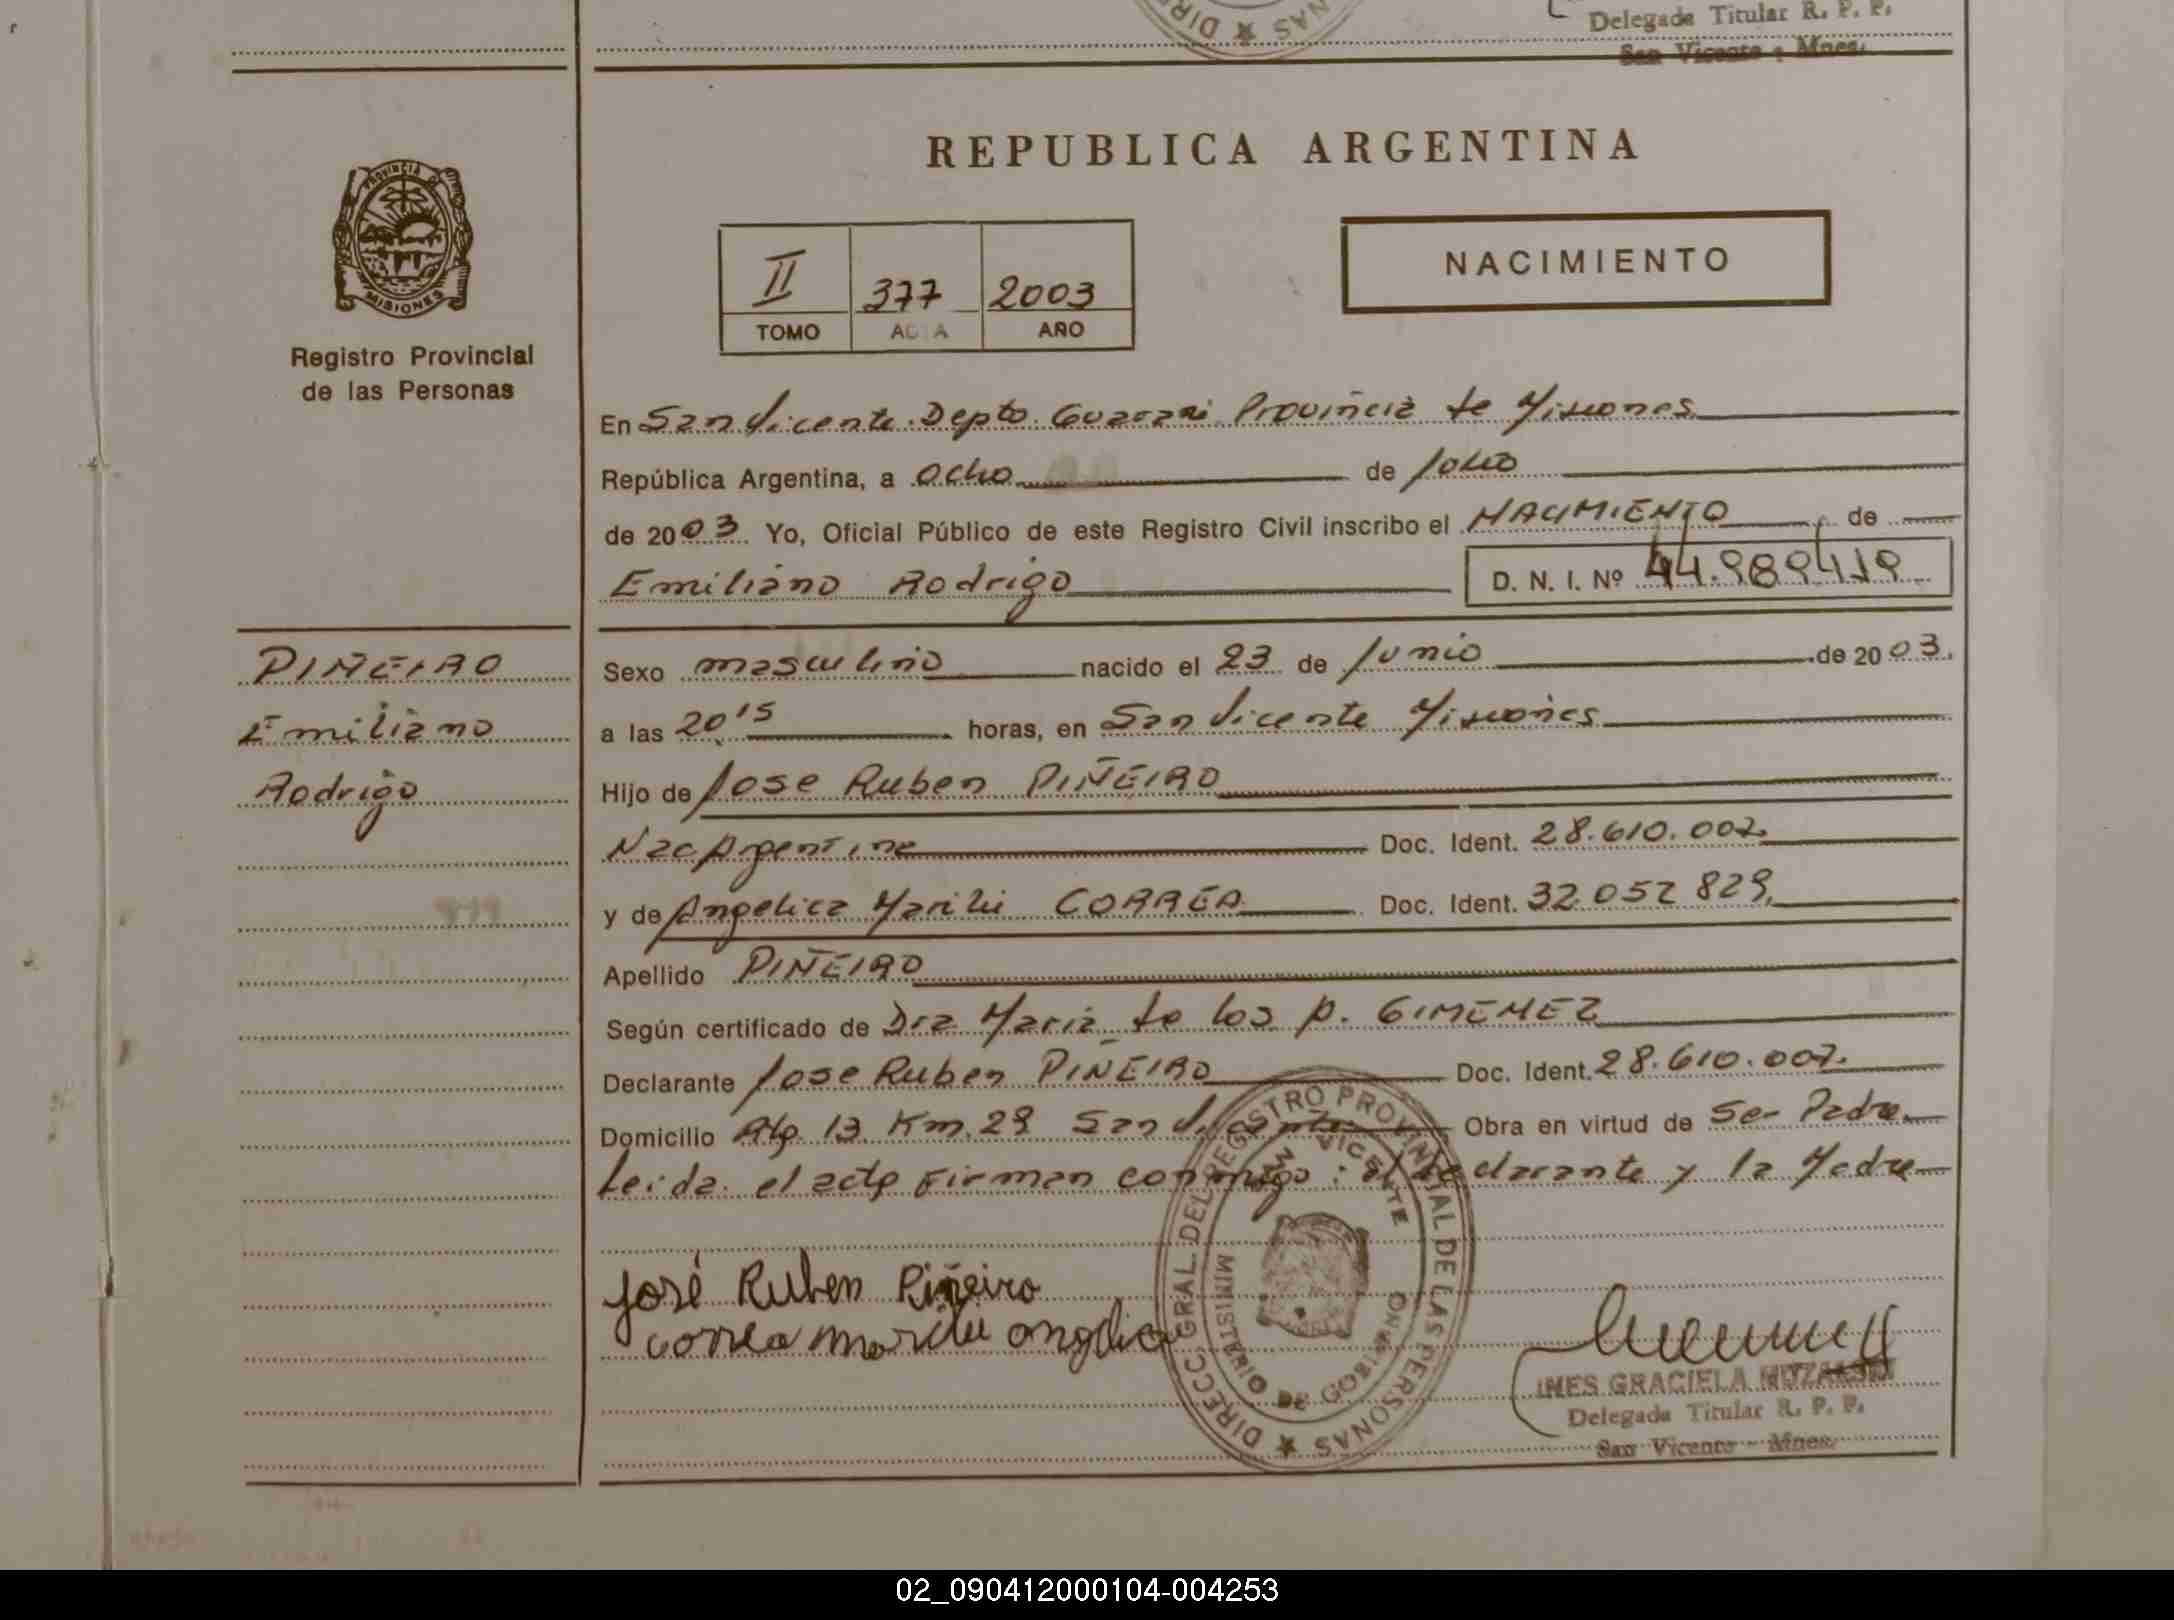 DIRE ★ NAS
Delegada Titular R. P. P.
San Vicente - Mnes.
PROVINCIA DE
MISIONES
Registro Provincial
de las Personas
REPUBLICA ARGENTINA
NACIMIENTO
II 377 2003
TOMO ACTA AÑO
En San Vicente Depto. Guarani Provincia de Misiones
República Argentina, a ocho de Julio
de 2003 Yo, Oficial Público de este Registro Civil inscribo el NACIMIENTO de
Emiliano Rodrigo D. N. I. Nº
PIÑEIRO
Emiliano
Rodrigo
Sexo masculino nacido el 23 de Junio de 2003.
a las 20,15 horas, en San Vicente Misiones
Hijo de Jose Ruben PIÑEIRO
Nac Argentina Doc. Ident. 28.610.007.
y de Angelica Marilu CORREA Doc. Ident. 32.052.829.
Apellido PIÑEIRO
Según certificado de Dra Maria de los A. GIMENEZ
Declarante Jose Ruben PIÑEIRO Doc. Ident. 28.610.007.
Domicilio Alp 13 Km. 29 San Vicente Obra en virtud de Ser Padre
Leida el acta Firman conmigo: el declarante y la Madre
José Ruben Piñeiro
Correa Marilu Angelica
DIRECC. GRAL. DEL REGISTRO PROVINCIAL DE LAS PERSONAS ★
MINISTERIO DE GOBIERNO
VICENTE
INES GRACIELA
Delegada Titular R. P. P.
San Vicente - Mnes.
02_090412000104-004253